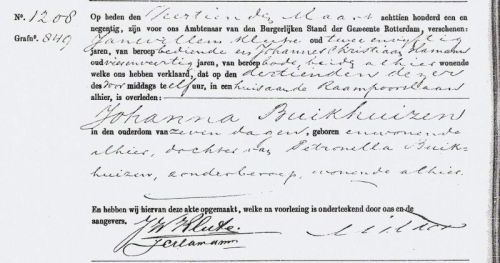 N°. 1208
Grafn°. 849
Op heden den Veertienden Maart achttien honderd een en
negentig, zijn voor ons Ambtenaar van den Burgerlijken Stand der Gemeente Rotterdam, verschenen:
oud twee en vijftig
jaren, van beroep bediende en Johannes Christiaan Hamann
oud vierenveertig jaren, van beroep bode, beide alhier wonende
welke ons hebben verklaard, dat op den dertienden dezer
des voormiddags te elf uur, in een huis aan de Raampoortlaan
alhier, is overleden:
Johanna Buikhuizen
in den ouderdom van zeven dagen, geboren en wonende
alhier, dochter van Petronella Buik-
huizen, zonder beroep, wonende alhier.
En hebben wij hiervan deze akte opgemaakt, welke na voorlezing is onderteekend door ons en de
aangevers.
JCHamann